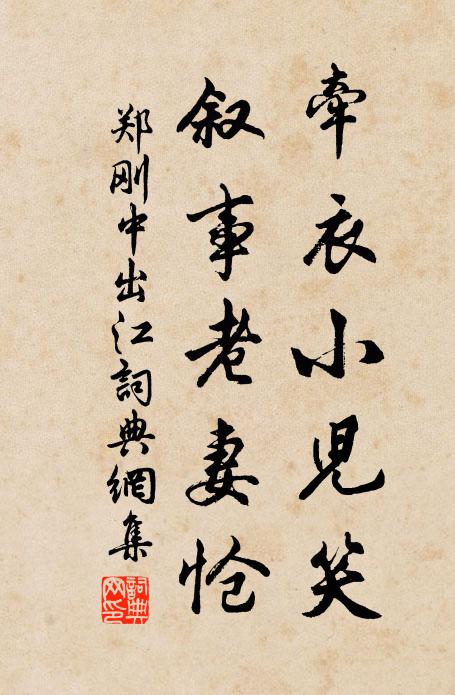 牵衣小儿笑
叙事老妻怆
郑刚中出江詞典網集
詞典网印